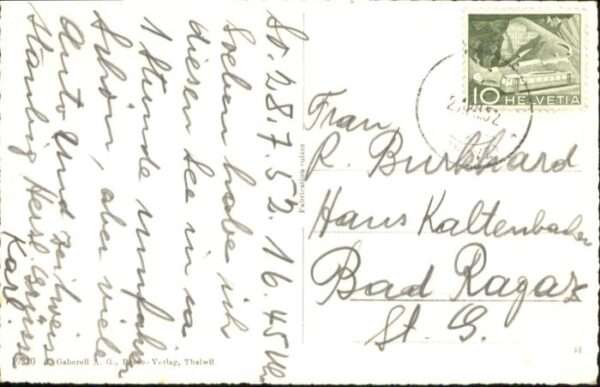 So. 28.7.52. 16.45 Uhr
Soeben habe ich
diesen See in ca
1 Stunde umfahren
Schön, aber viele
Auto und zeitweis
staubig Herzl. Grüsse
Karl
Fabrication suisse
10 HELVETIA
Frau
R. Burkhard
Haus Kaltenbacher
Bad Ragaz
St. G.
Gaberell A. G., Photo-Verlag, Thalwil